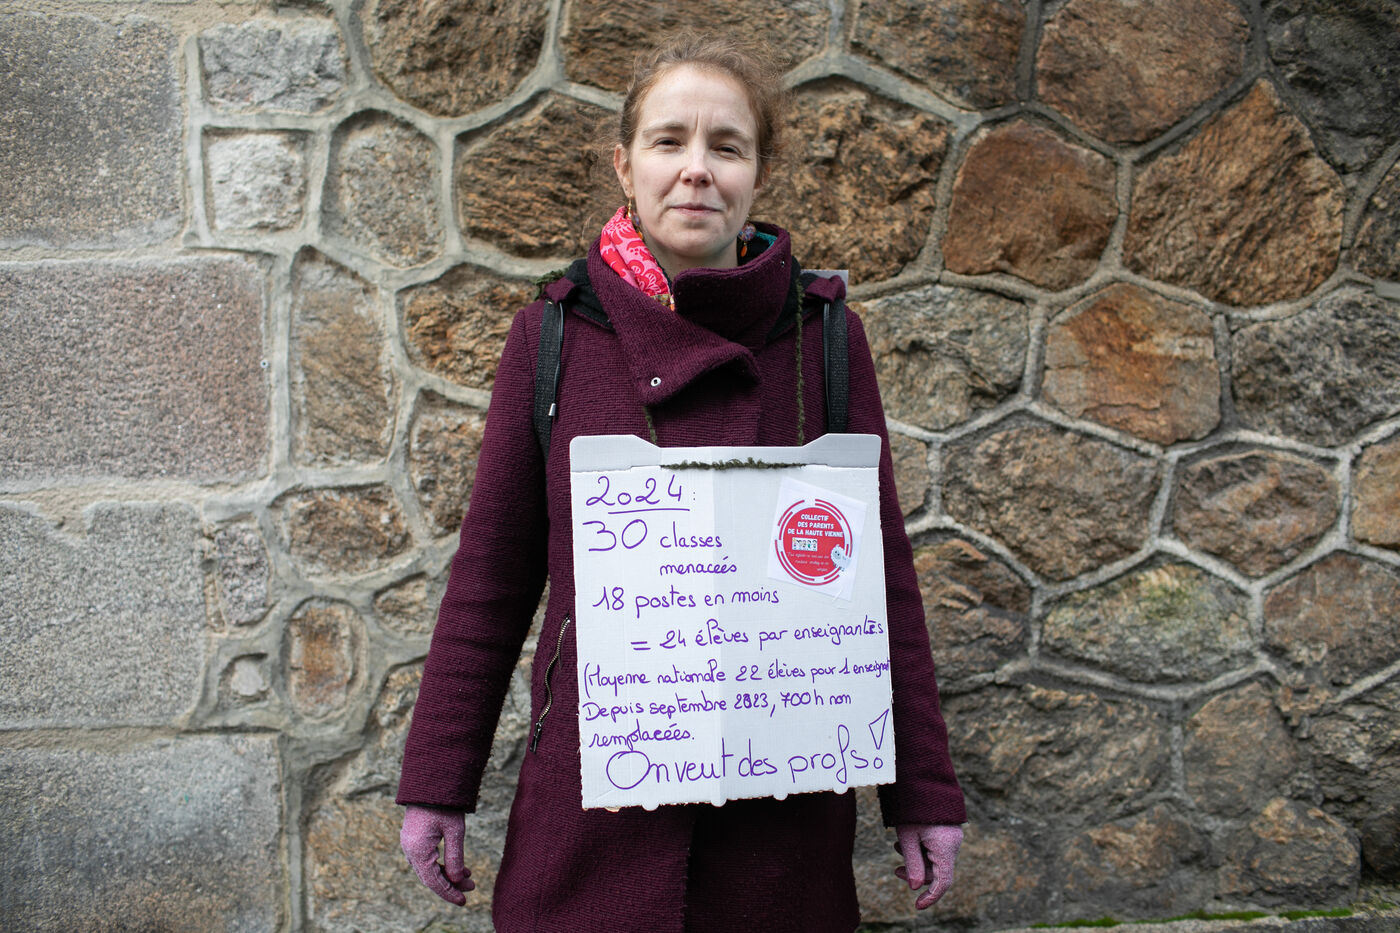 2024 :
30 classes
menaceés
18 postes en moins
= 24 élèves par enseignantEs
(Moyenne nationale 22 élèves pour 1 enseignant
Depuis septembre 2023, 700h non
remplaceés.
On veut des profs !
COLLECTIF
DES PARENTS
DE LA HAUTE VIENNE